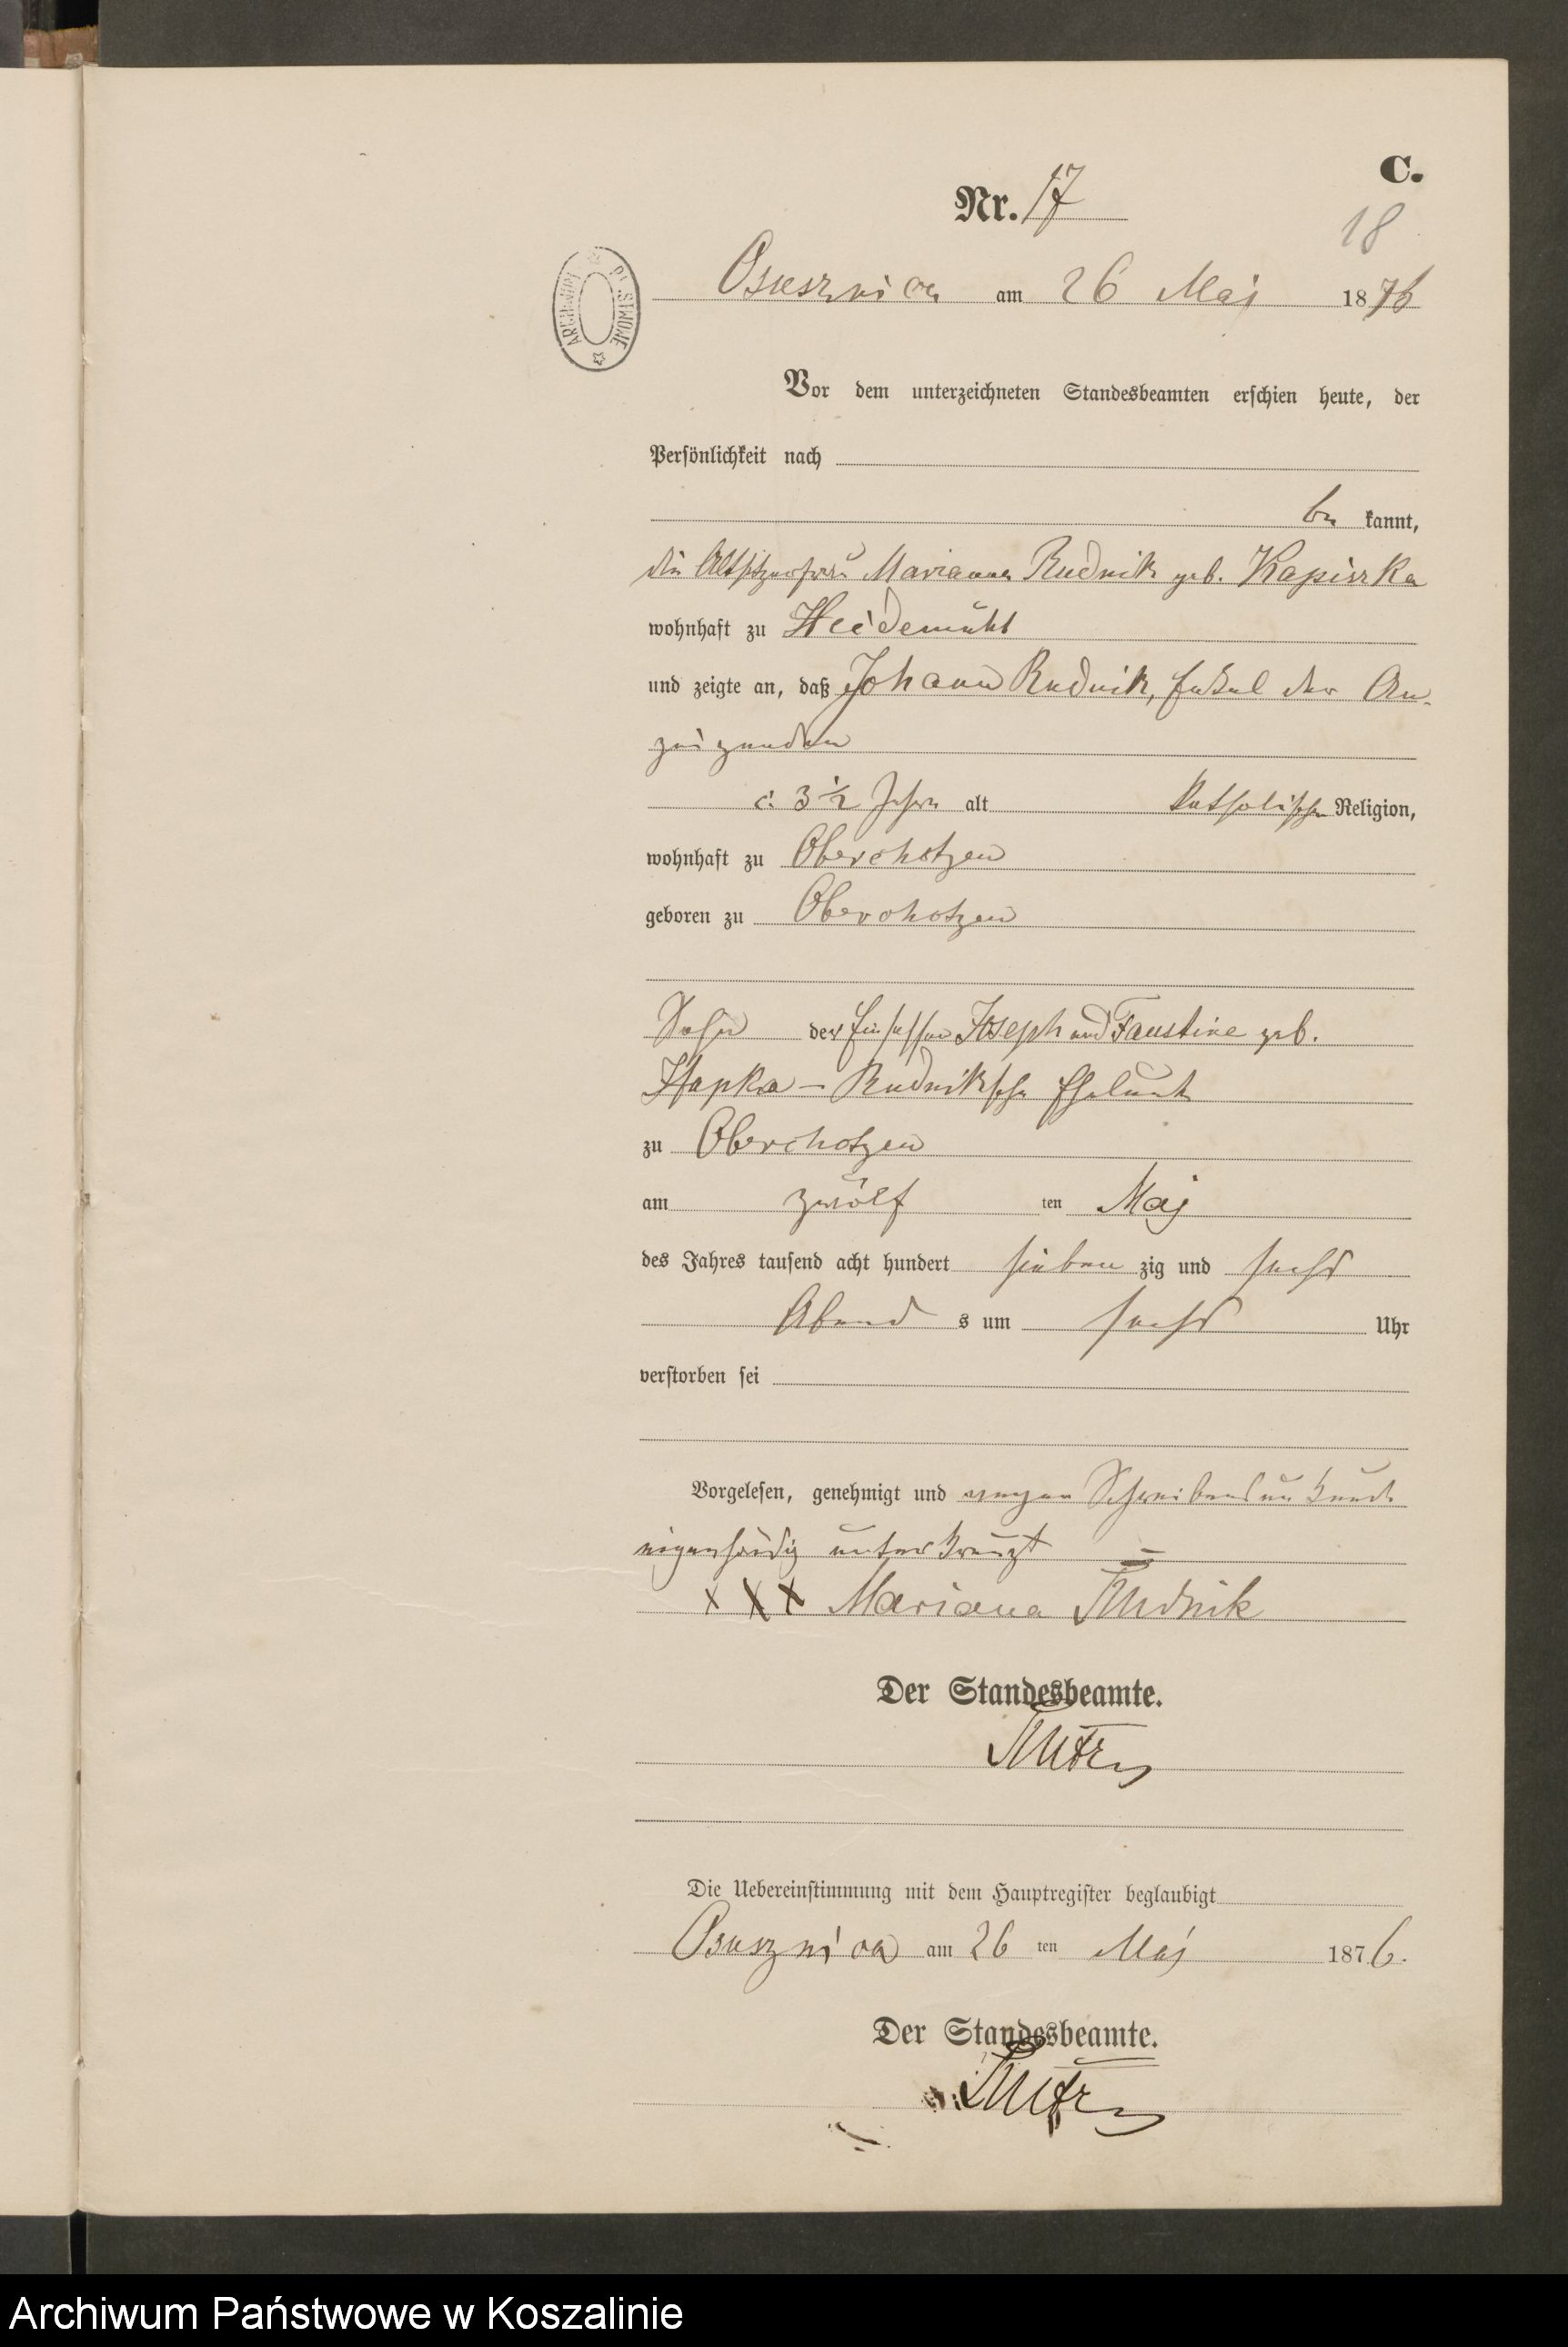 C.
Nr. 17
18
Osusznica am 26 Maj 1876
ARCHIWUM PAŃSTWOWE
Vor dem unterzeichneten Standesbeamten erschien heute, der
Persönlichkeit nach
be kannt,
die Altsitzerfrau Marianna Rudnik geb. Kapiszka
wohnhaft zu Heidemühl
und zeigte an, daß Johann Rudnik, Enkel der An-
zeigenden
c. 3 1/2 Jahre alt katholischer Religion,
wohnhaft zu Oberchotzen
geboren zu Oberchotzen
Sohn der Einsassen Joseph und Faustine geb.
Rudnikschen Eheleute
zu Oberchotzen
am zwölf ten Maj
des Jahres tausend acht hundert sieben zig und sechs
Abend s um sechs Uhr
verstorben sei
Vorgelesen, genehmigt und wegen Schreibensunkunde
eigenhändig unterkreuzt
x x x Mariana Rudnik
Der Standesbeamte.
Die Uebereinstimmung mit dem Hauptregister beglaubigt
Osusznica am 26 ten Maj 1876.
Der Standesbeamte.
Archiwum Państwowe w Koszalinie